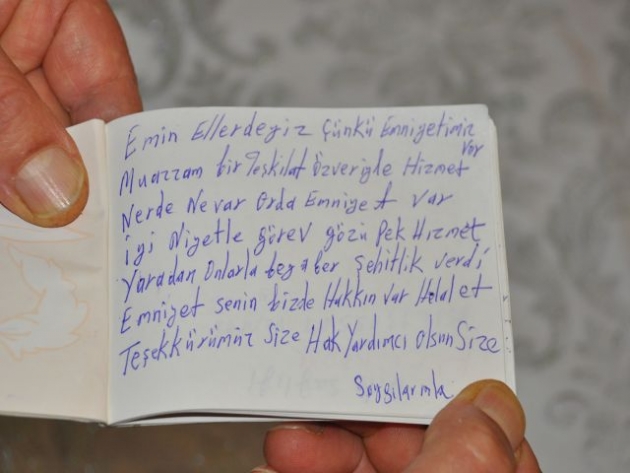 Emin Ellerdeyiz Çünkü Emniyetimiz Var
Muazzam bir Teşkilat Özveriyle Hizmet
Nerde Ne var Orda Emniyet var
İyi Niyetle görev gözü Pek Hizmet
Yaradan Onlarla beraber Şehitlik verdi
Emniyet senin bizde Hakkın var Helal et
Teşekkürümüz Size Hak Yardımcı Olsun Size
Saygılarımla